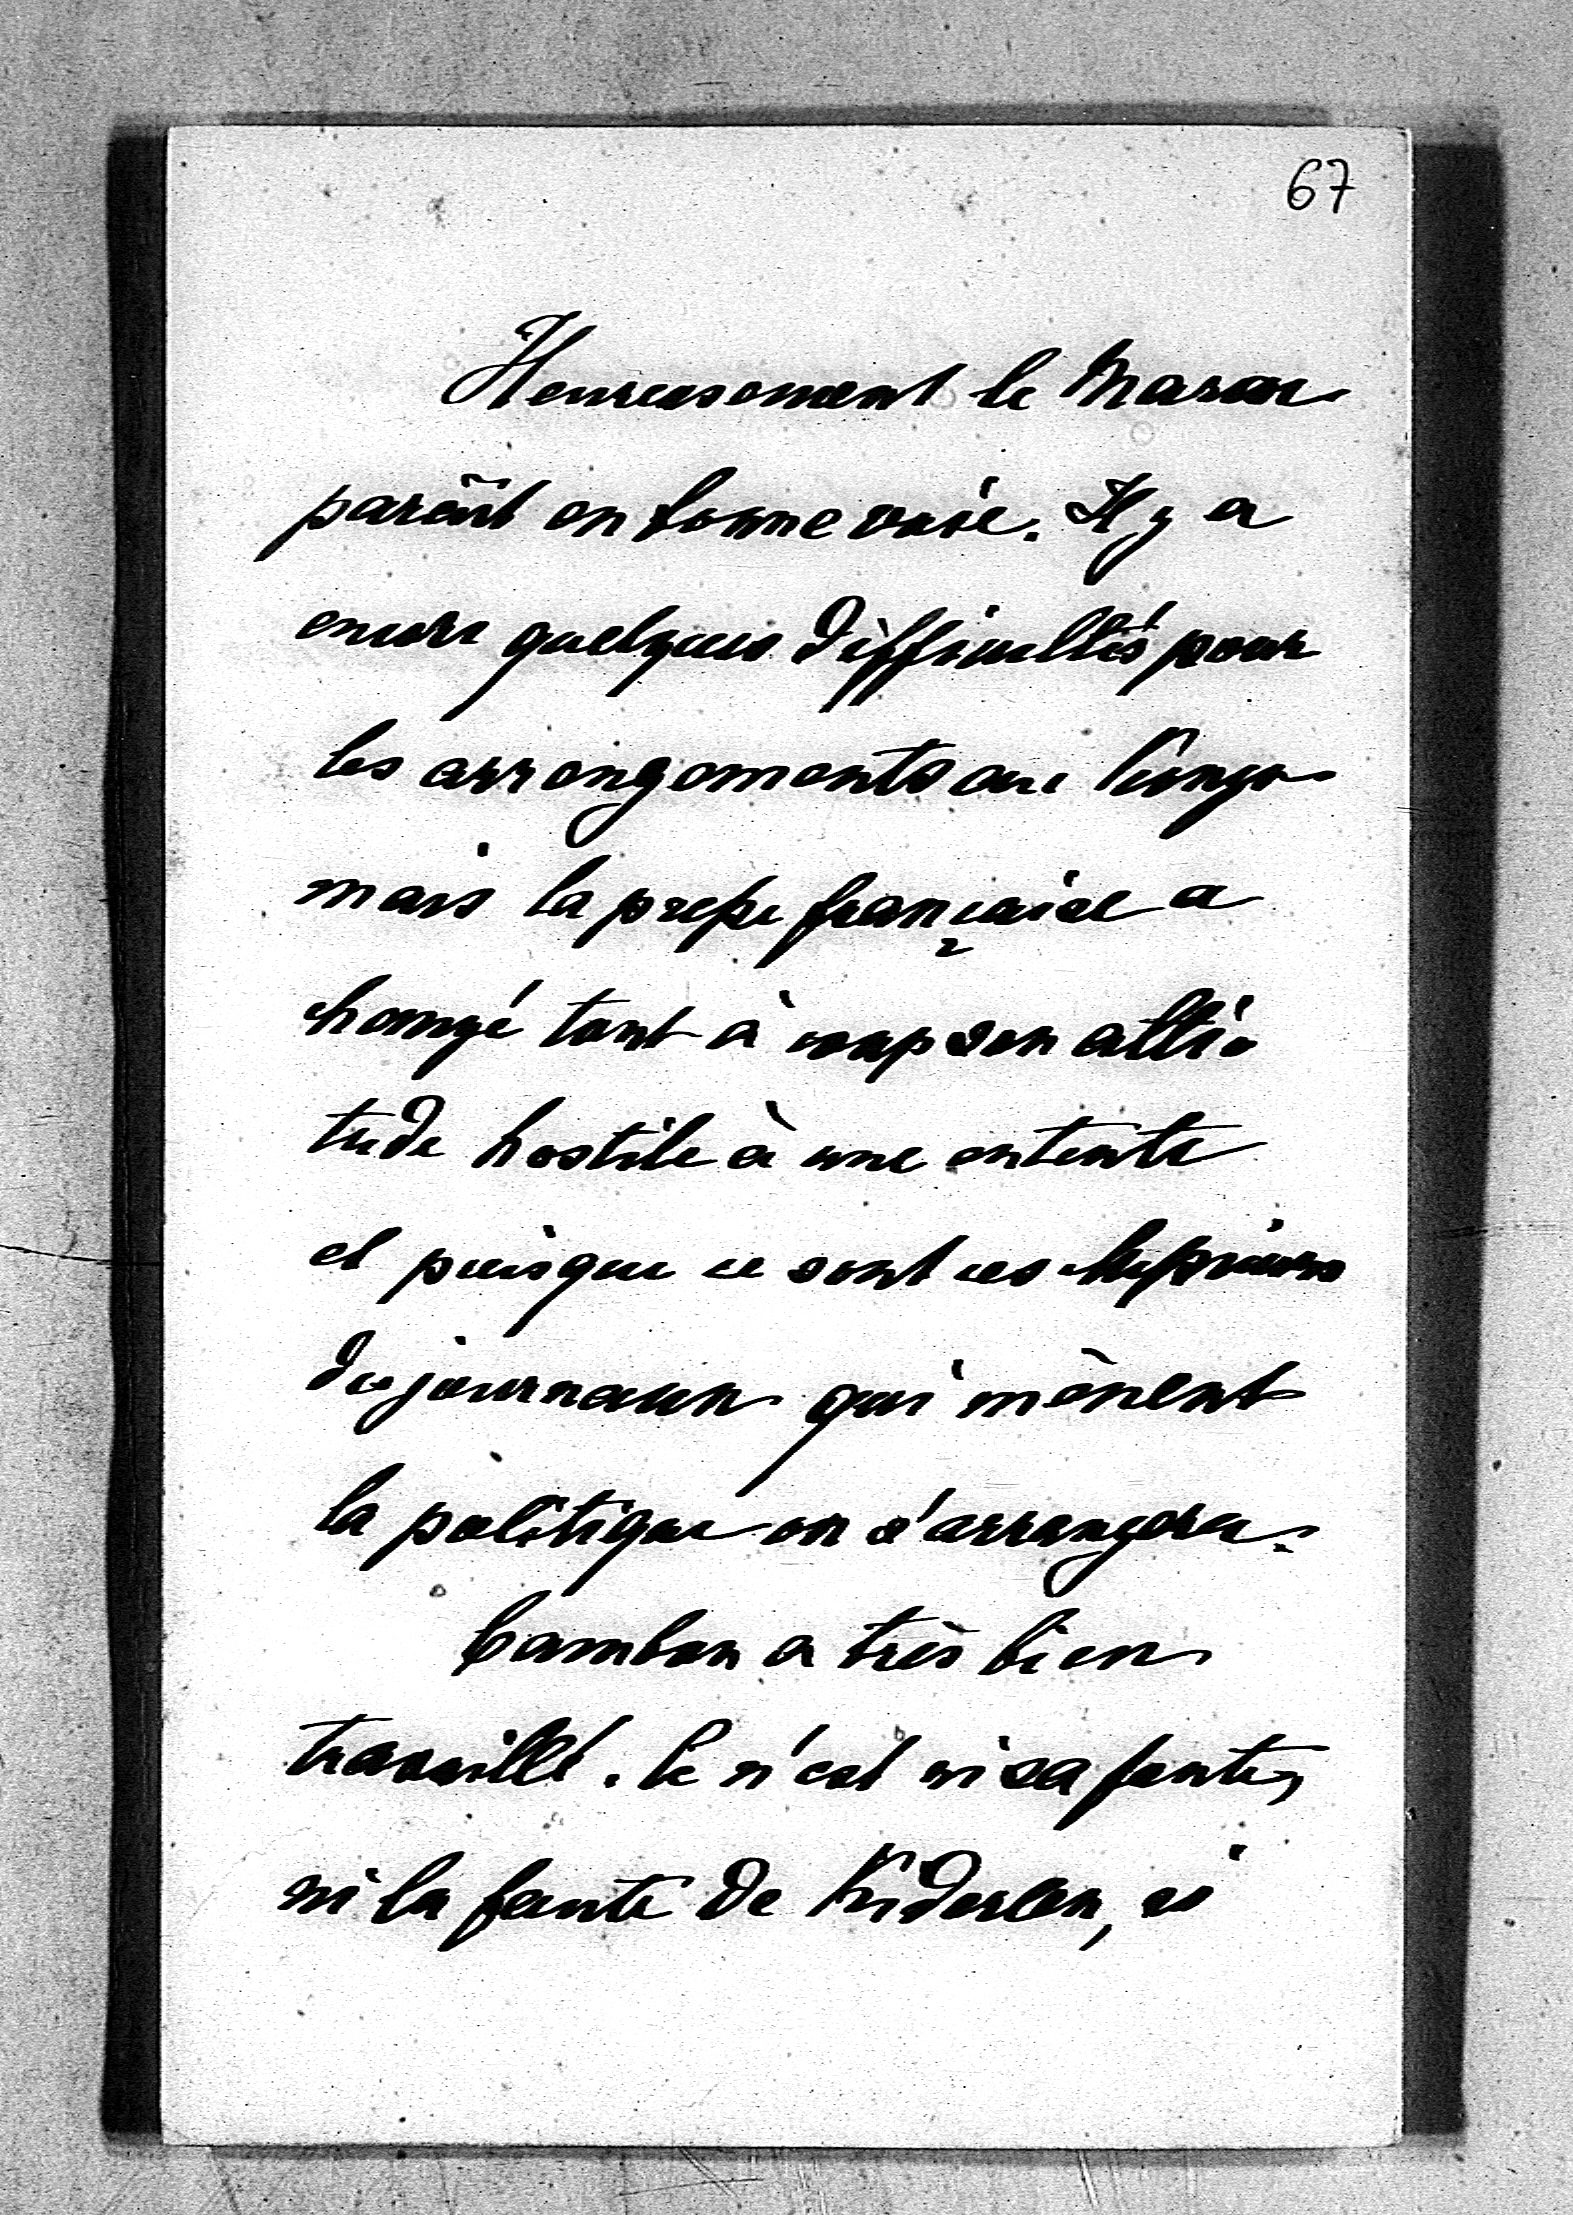 67
Heureusement le Maroc
paraît en bonne voie. Il y a
encore quelques difficultés pour
les arrangements au Congo
mais la presse française a
changé tout à coup son atti-
tude hostile à une entente
et puisque ce sont ces Messieurs
des journaux qui mènent
la politique on s'arrangera.
Cambon a très bien
travaillé. Ce n'est ni sa faute,
ni la faute de Kiderlen, si